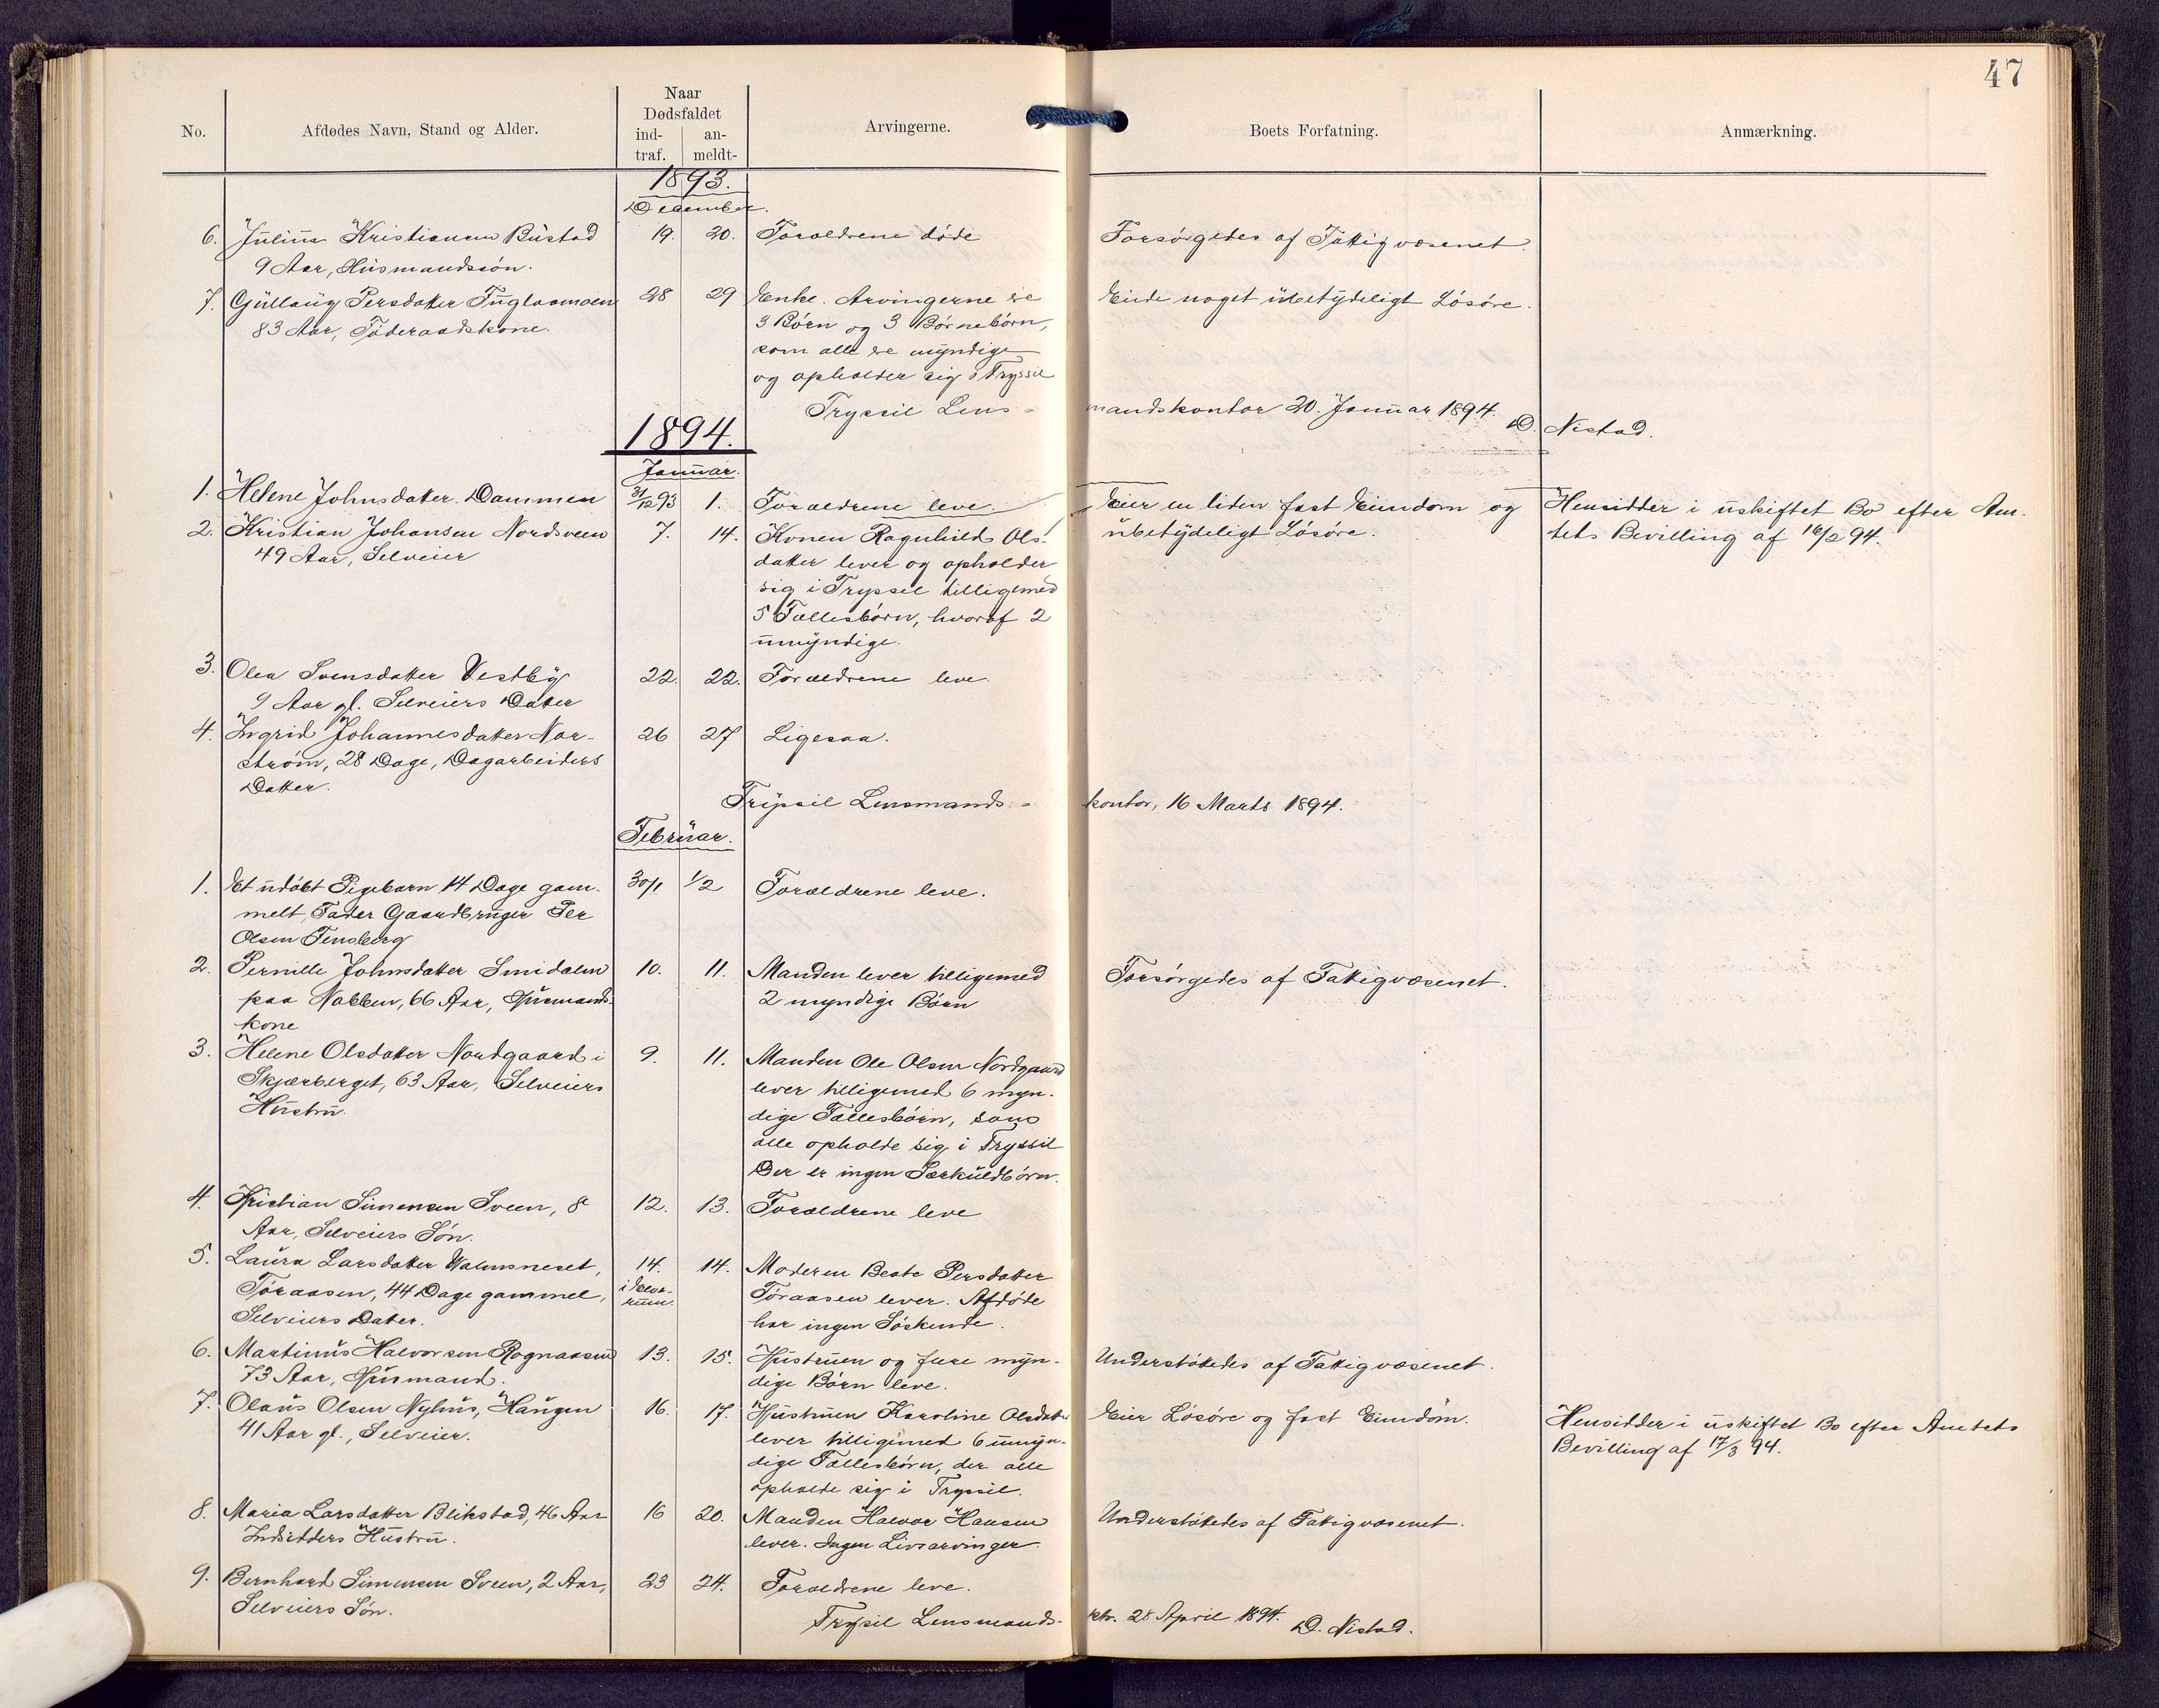 47
No. Afdødes Navn, Stand og Alder. Naar Dødsfaldet ind- traf. an- meldt- Arvingerne. Boets Forfatning. Anmærkning.
1893.
December.
6. Julius Kristiansen Bustad 19. 20. Forældrene døde Forsørgedes af Fattigvæsenet.
9 Aar, Husmandssøn.
7. Gullaug Persdatter Fuglaasmoen 28 29 Enke. Arvingerne ere Eiede noget ubetydeligt Løsøre.
83 Aar, Føderaadskone. 3 Børn og 3 Børnebørn,
som alle ere myndige
og opholder sig i Tryssil
Tryssil Lens- mandskontor 20. Januar 1894.
D. Nistad.
1894.
Januar.
1. Helene Johnsdatter Dammen 31/12 93 1. Forældrene leve.
2. Kristian Johansen Nordsveen 7. 14. Konen Ragnhild Ols- Eier en liden fast Eiendom og Hensidder i uskiftet Bo efter Am-
49 Aar, Selveier datter lever og opholder ubetydeligt Løsøre. tets Bevilling af 16/2 94.
sig i Tryssil tilligemed
5 Fællesbørn, hvoraf 2
umyndige.
3. Olea Svensdatter Vestby 22. 22. Forældrene leve.
9 Aar gl. Selveiers Datter
4. Ingrid Johannesdatter Nor- 26 27 Ligesaa.
strøm, 28 Dage, Dagarbeiders
Datter.
Trysil Lensmands- kontor, 16 Marts 1894.
Februar.
1. Et udøbt Pigebarn 14 Dage gam- 30/1 1/2 Forældrene leve.
melt, Fader Gaardbruger Per
Olsen Tensberg
2. Pernille Johnsdatter Smidalen 10. 11. Manden lever tilligemed Forsørgedes af Fattigvæsenet.
paa Nabben, 66 Aar, Husmands- 2 myndige Børn
kone
3. Helene Olsdatter Nordgaard i 9. 11. Manden Ole Olsen Nordgaard
Skjærberget, 63 Aar, Selveiers lever tilligemed 6 myn-
Hustru. dige Fællesbørn, som
alle opholde sig i Tryssil
Der er ingen Særkuldbørn.
4. Kristian Simensen Sveen, 8 12. 13. Forældrene leve
Aar, Selveiers Søn.
5. Laura Larsdatter Malmneset, 14. 14. Moderen Beate Persdatter
Føraasen, 44 Dage gammel, i Elve- rum. Føraasen lever. Afdøde
Selveiers Datter. har ingen Søskende.
6. Martinus Halvorsen Rognaasen 13. 15. Hustruen og flere myn- Understøttedes af Fattigvæsenet.
73 Aar, Husmand. dige Børn leve.
7. Olaus Olsen Nyhus, Haugen 16. 17. Hustruen Karoline Olsdatter Eier Løsøre og fast Eiendom. Hensidder i uskiftet Bo efter Amtets
41 Aar gl., Selveier. lever tilligemed 6 umyn- Bevilling af 17/3 94.
dige Fællesbørn, der alle
opholde sig i Trysil.
8. Maria Larsdatter Blikstad, 46 Aar 16 20. Manden Halvor Hansen Understøttedes af Fattigvæsenet.
Indsidders Hustru. lever. Ingen Livsarvinger.
9. Bernhard Simensen Sveen, 2 Aar, 23 24. Forældrene leve.
Selveiers Søn.
Trysil Lensmands- ktr. 28 April 1894. D. Nistad.